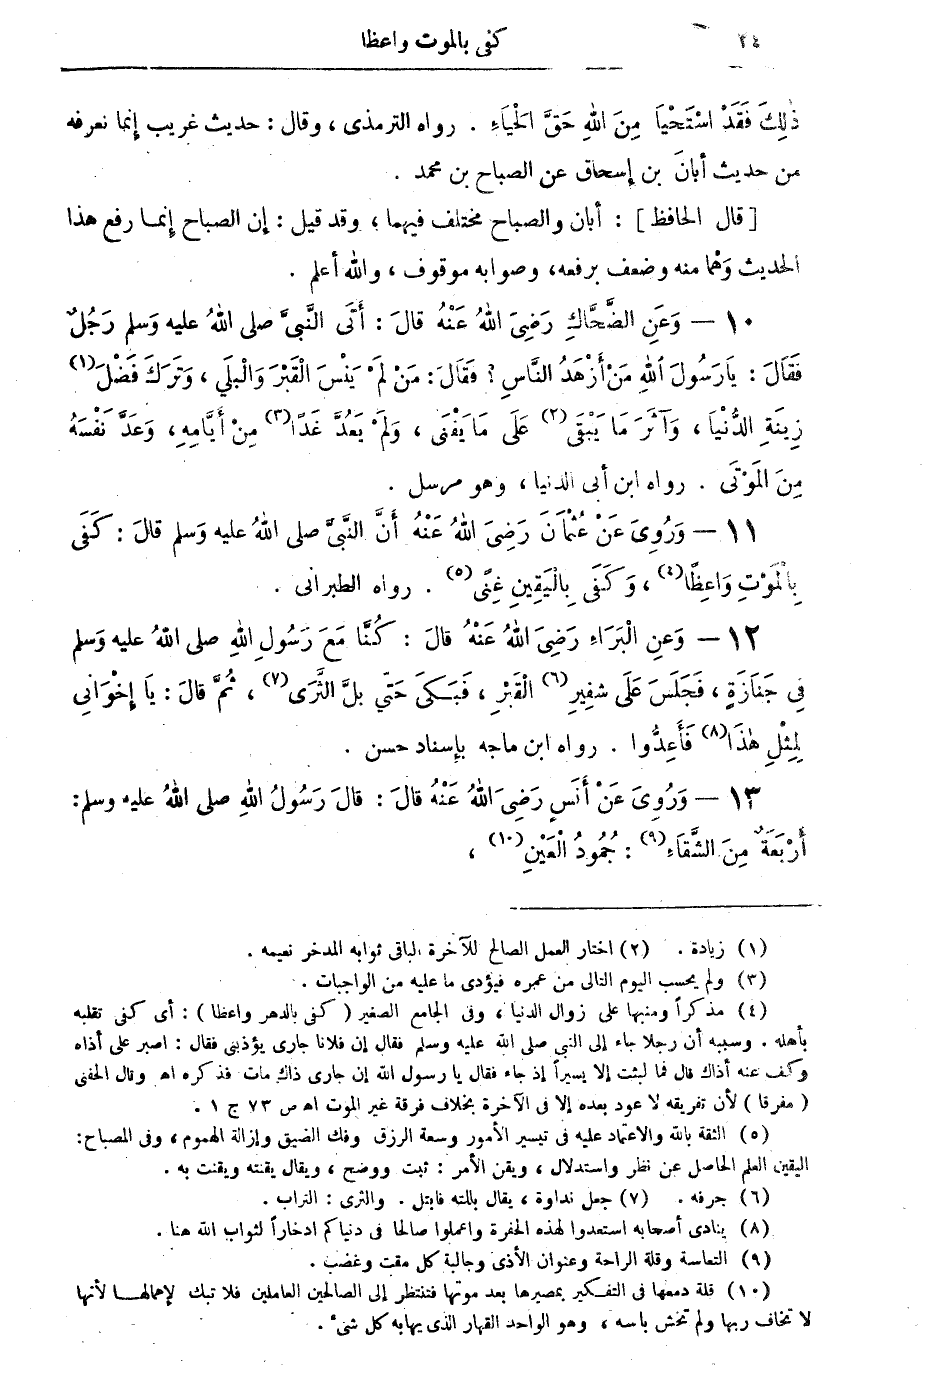 ٢٤ كفى بالموت واعظا
ذٰلِكَ فَقَدْ اسْتَحْيَا مِنَ اللهِ حَقَّ الْحَيَاءِ . رواه الترمذى ، وقال : حديث غريب إنما نعرفه
من حديث أبانَ بن إسحاق عن الصباح بن محمد .
[ قال الحافظ ] : أبان والصباح مختلف فيهما ، وقد قيل : إن الصباح إنمـا رفع هذا
الحديث وَهْما منه وضعف برفعه، وصوابه موقوف ، والله أعلم .
١٠ – وَعَنِ الضَّحَّاكِ رَضِىَ اللهُ عَنْهُ قالَ : أَتَى النَّبِىَّ صلى اللهُ عليه وَسلم رَجُلٌ
فَقَالَ : يارَسُولَ اللهِ مَنْ أَزْهَدُ النَّاسِ ؟ فَقَالَ: مَنْ لَمْ يَنْسَ الْقَبْرَ وَالْبِلَي ، وَتَرَكَ فَضْلَ(١)
زِينَةِ الدُّنْيَا ، وَآثَرَ مَا يَبْقَى(٢) عَلَى مَا يَفْنَى ، وَلَمْ يَعُدَّ غَدًا(٣) مِنْ أَيَّامِهِ، وَعَدَّ نَفْسَهُ
مِنَ المَوْتَى . رواه ابن أبى الدنيا ، وهو مرسل .
١١ – وَرُوِىَ عَنْ عُثْمَانَ رَضِىَ اللهُ عَنْهُ أَنَّ النَّبِىَّ صلى اللهُ عليه وَسلم قالَ : كَفَى
بِالْمَوْتِ وَاعِظًا(٤) ، وَكَفَى بِالْيَقِينِ غِنًى(٥) . رواه الطبرانى .
١٢ – وَعَنِ الْبَرَاءِ رَضِىَ اللهُ عَنْهُ قالَ : كُنَّا مَعَ رَسُولِ اللهِ صلى اللهُ عليه وَسلم
فِى جَنَازَةٍ ، فَجَلَسَ عَلَى شَفِيرِ(٦) الْقَبْرِ ، فَبَـكَى حَتَّى بلَّ الثَّرَى(٧) ، ثُمَّ قالَ : يَا إخْوَانِي
لِمِثْلِ هٰذَا(٨) فَأَعِدُّوا . رواه ابن ماجه بإسناد حسن .
١٣ – وَرُوِىَ عَنْ أَنَسٍ رَضِىَ اللهُ عَنْهُ قالَ : قالَ رَسُولُ اللهِ صلى اللهُ عليه وسلم:
أَرْبَعَةٌ مِنَ الشَّقَاءِ(٩) : جُمُودُ الْعَيْنِ(١٠) ،
(١) زيادة . (٢) اختار العمل الصالح للآخرة الباقى ثوابه المدخر نعيمه .
(٣) ولم يحسب اليوم التالى من عمره فيؤدى ما عليه من الواجبات .
(٤) مذكراً ومنبها على زوال الدنيا ، وفى الجامع الصغير ( كفى بالدهر واعظا ) : أى كفى تقلبه
بأهله . وسببه أن رجلا جاء إلى النبى صلى الله عليه وسلم فقال إن فلانا جارى يؤذينى فقال : اصبر على أذاه
وكف عنه أذاك قال فما لبثت إلا يسيراً إذ جاء فقال يا رسول الله إن جارى ذاك مات فذكره اهـ وقال الحفنى
( مفرقا ) لأن تفريقه لا عود بعده إلا فى الآخرة بخلاف فرقة غير الموت اهـ ص ٧٣ ج ١ .
(٥) الثقة بالله والاعتماد عليه فى تيسير الأمور وسعة الرزق وفك الضيق وإزالة الهموم ، وفى المصباح:
اليقين العلم الحاصل عن نظر واستدلال ، ويقن الأمر : ثبت ووضح ، ويقال يقنته ويقنت به .
(٦) جرفه . (٧) جعل نداوة ، يقال بللته فابتل . والثرى : التراب .
(٨) ينادى أصحابه استعدوا لهذه الحفرة واعملوا صالحا فى دنياكم ادخاراً لثواب الله هنا .
(٩) التعاسة وقلة الراحة وعنوان الأذى وجالبة كل مقت وغضب .
(١٠) قلة دمعها فى التفـكير بمصيرها بعد موتها فتنتظر إلى الصالحين العاملين فلا تبك لإهمالهـا لأنها
لا تخاف ربها ولم تخش بأسه ، وهو الواحد القهار الذى يهابه كل شىء .